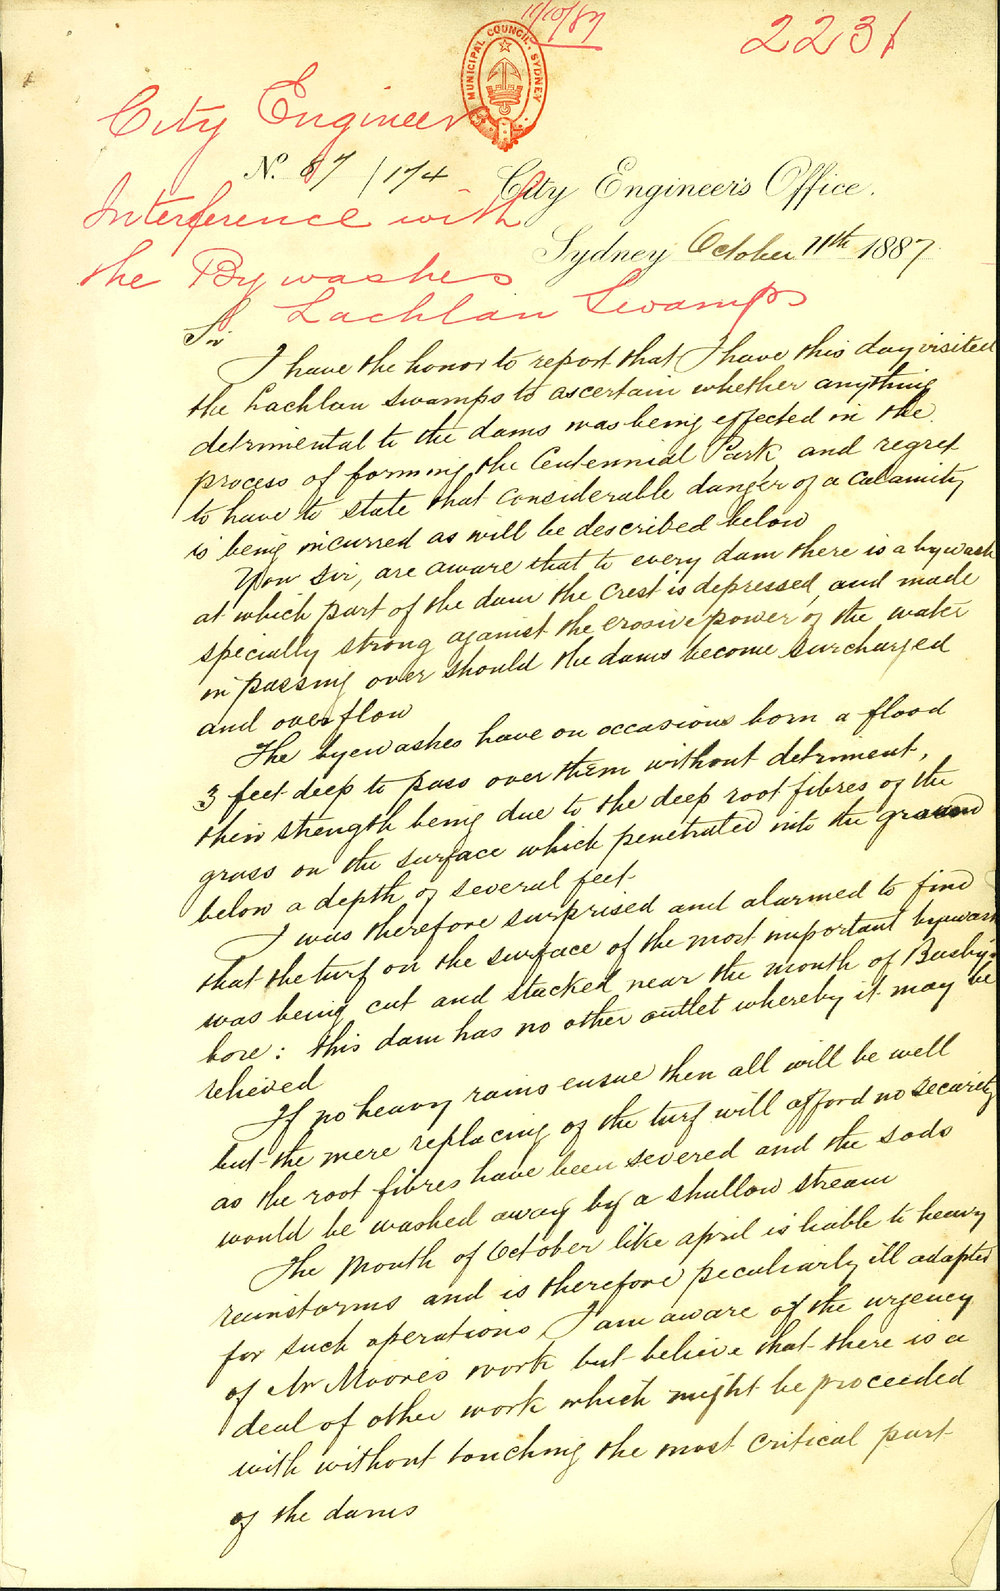 11/10/87
2231
MUNICIPAL COUNCIL SYDNEY
City Engineer
No. 87 / 174
City Engineer's Office.
Interference with
Sydney October 11th 1887
the Bywashes
Lachlan Swamps
Sir
I have the honor to report that I have this day visited
the Lachlan Swamps to ascertain whether anything
detrimental to the dams was being effected in the
process of forming the Centennial Park, and regret
to have to state that considerable danger of a calamity
is being incurred as will be described below
You Sir, are aware that to every dam there is a bywash
at which part of the dam the crest is depressed, and made
specially strong against the erosive power of the water
in passing over should the dams become surcharged
and overflow
The byewashes have on occasions born a flood
3 feet deep to pass over them without detriment,
their strength being due to the deep root fibres of the
grass on the surface which penetrated into the ground
below a depth of several feet.
I was therefore surprised and alarmed to find
that the turf on the surface of the most important bywash
was being cut and stacked near the mouth of Busby's
bore: this dam has no other outlet whereby it may be
relieved
If no heavy rains ensue then all will be well
but the mere replacing of the turf will afford no security
as the root fibres have been severed and the sods
would be washed away by a shallow stream
The month of October like april is liable to heavy
rainstorms and is therefore peculiarly ill adapted
for such operations I am aware of the urgency
of Mr Moore's work but believe that there is a
deal of other work which might be proceeded
with without touching the most critical part
of the dams